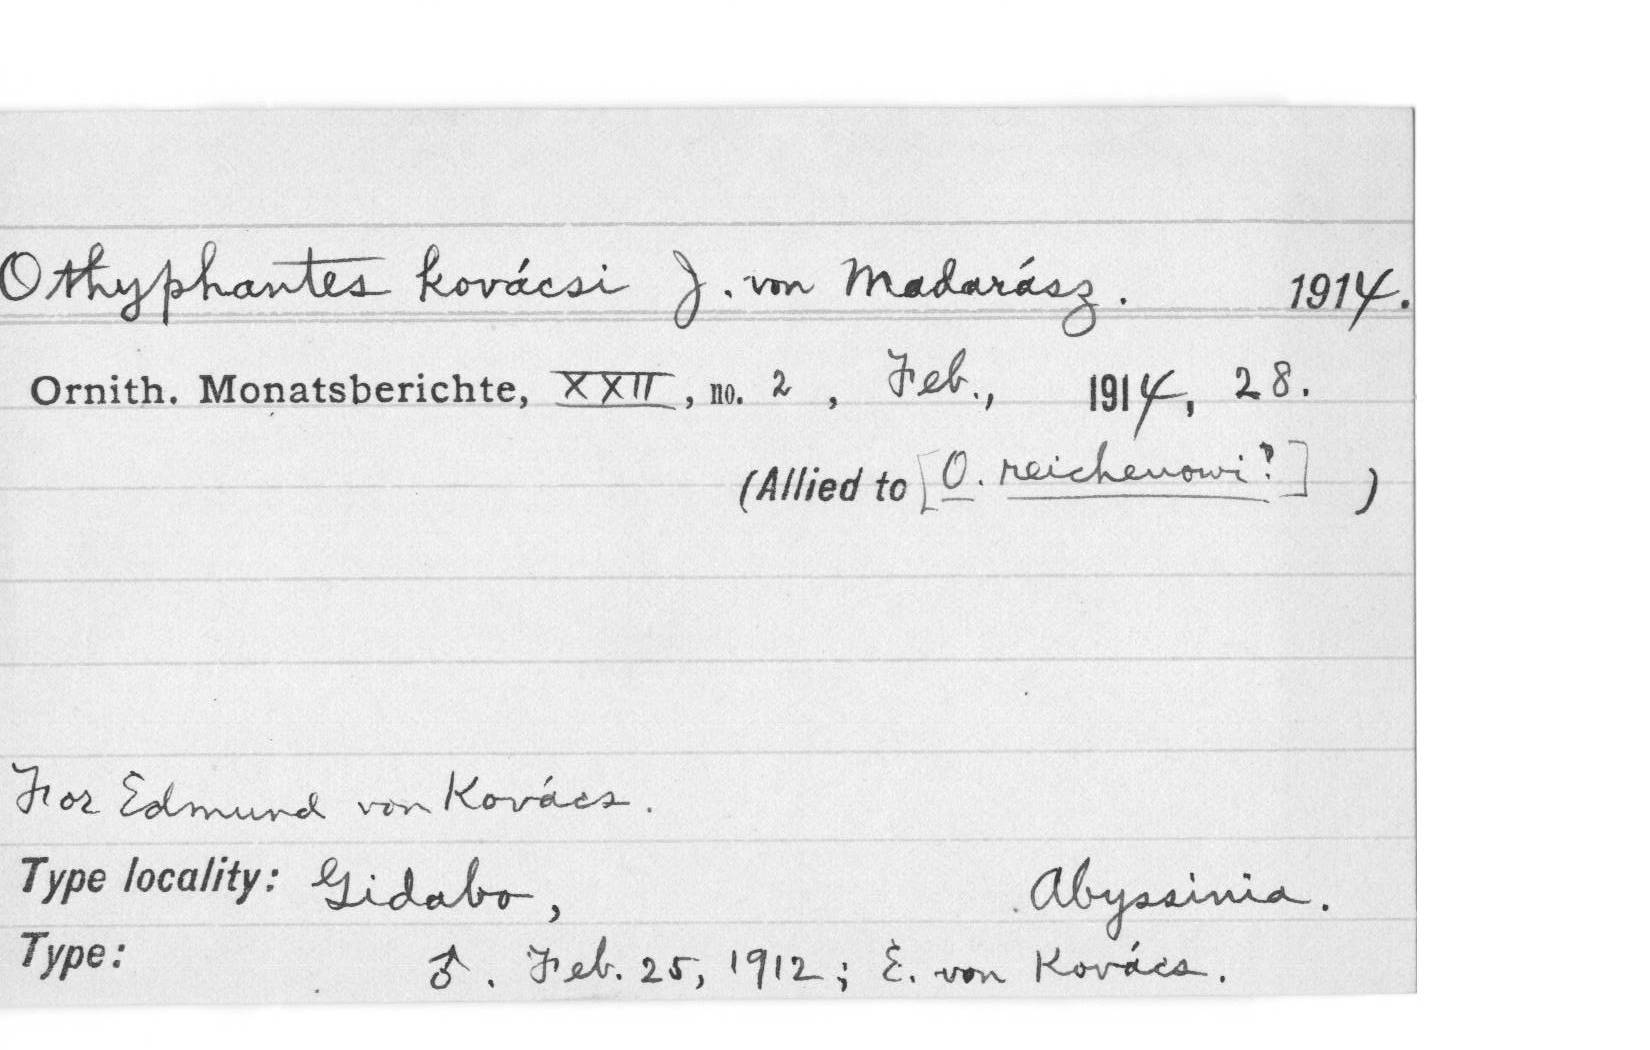 Othyphantes kovácsi J. von Madarász. 1914.
Ornith. Monatsberichte, XXII, no. 2, Feb., 1914, 28.
(Allied to [O. reichenowi?] )
For Edmund von Kovács.
Type locality: Gidabo, Abyssinia.
Type: ♂. Feb. 25, 1912; E. von Kovács.